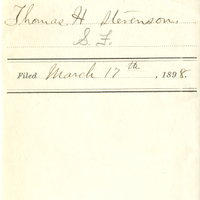 Thomas. H Stevenson.
S. F.
Filed March 17th, 1898.